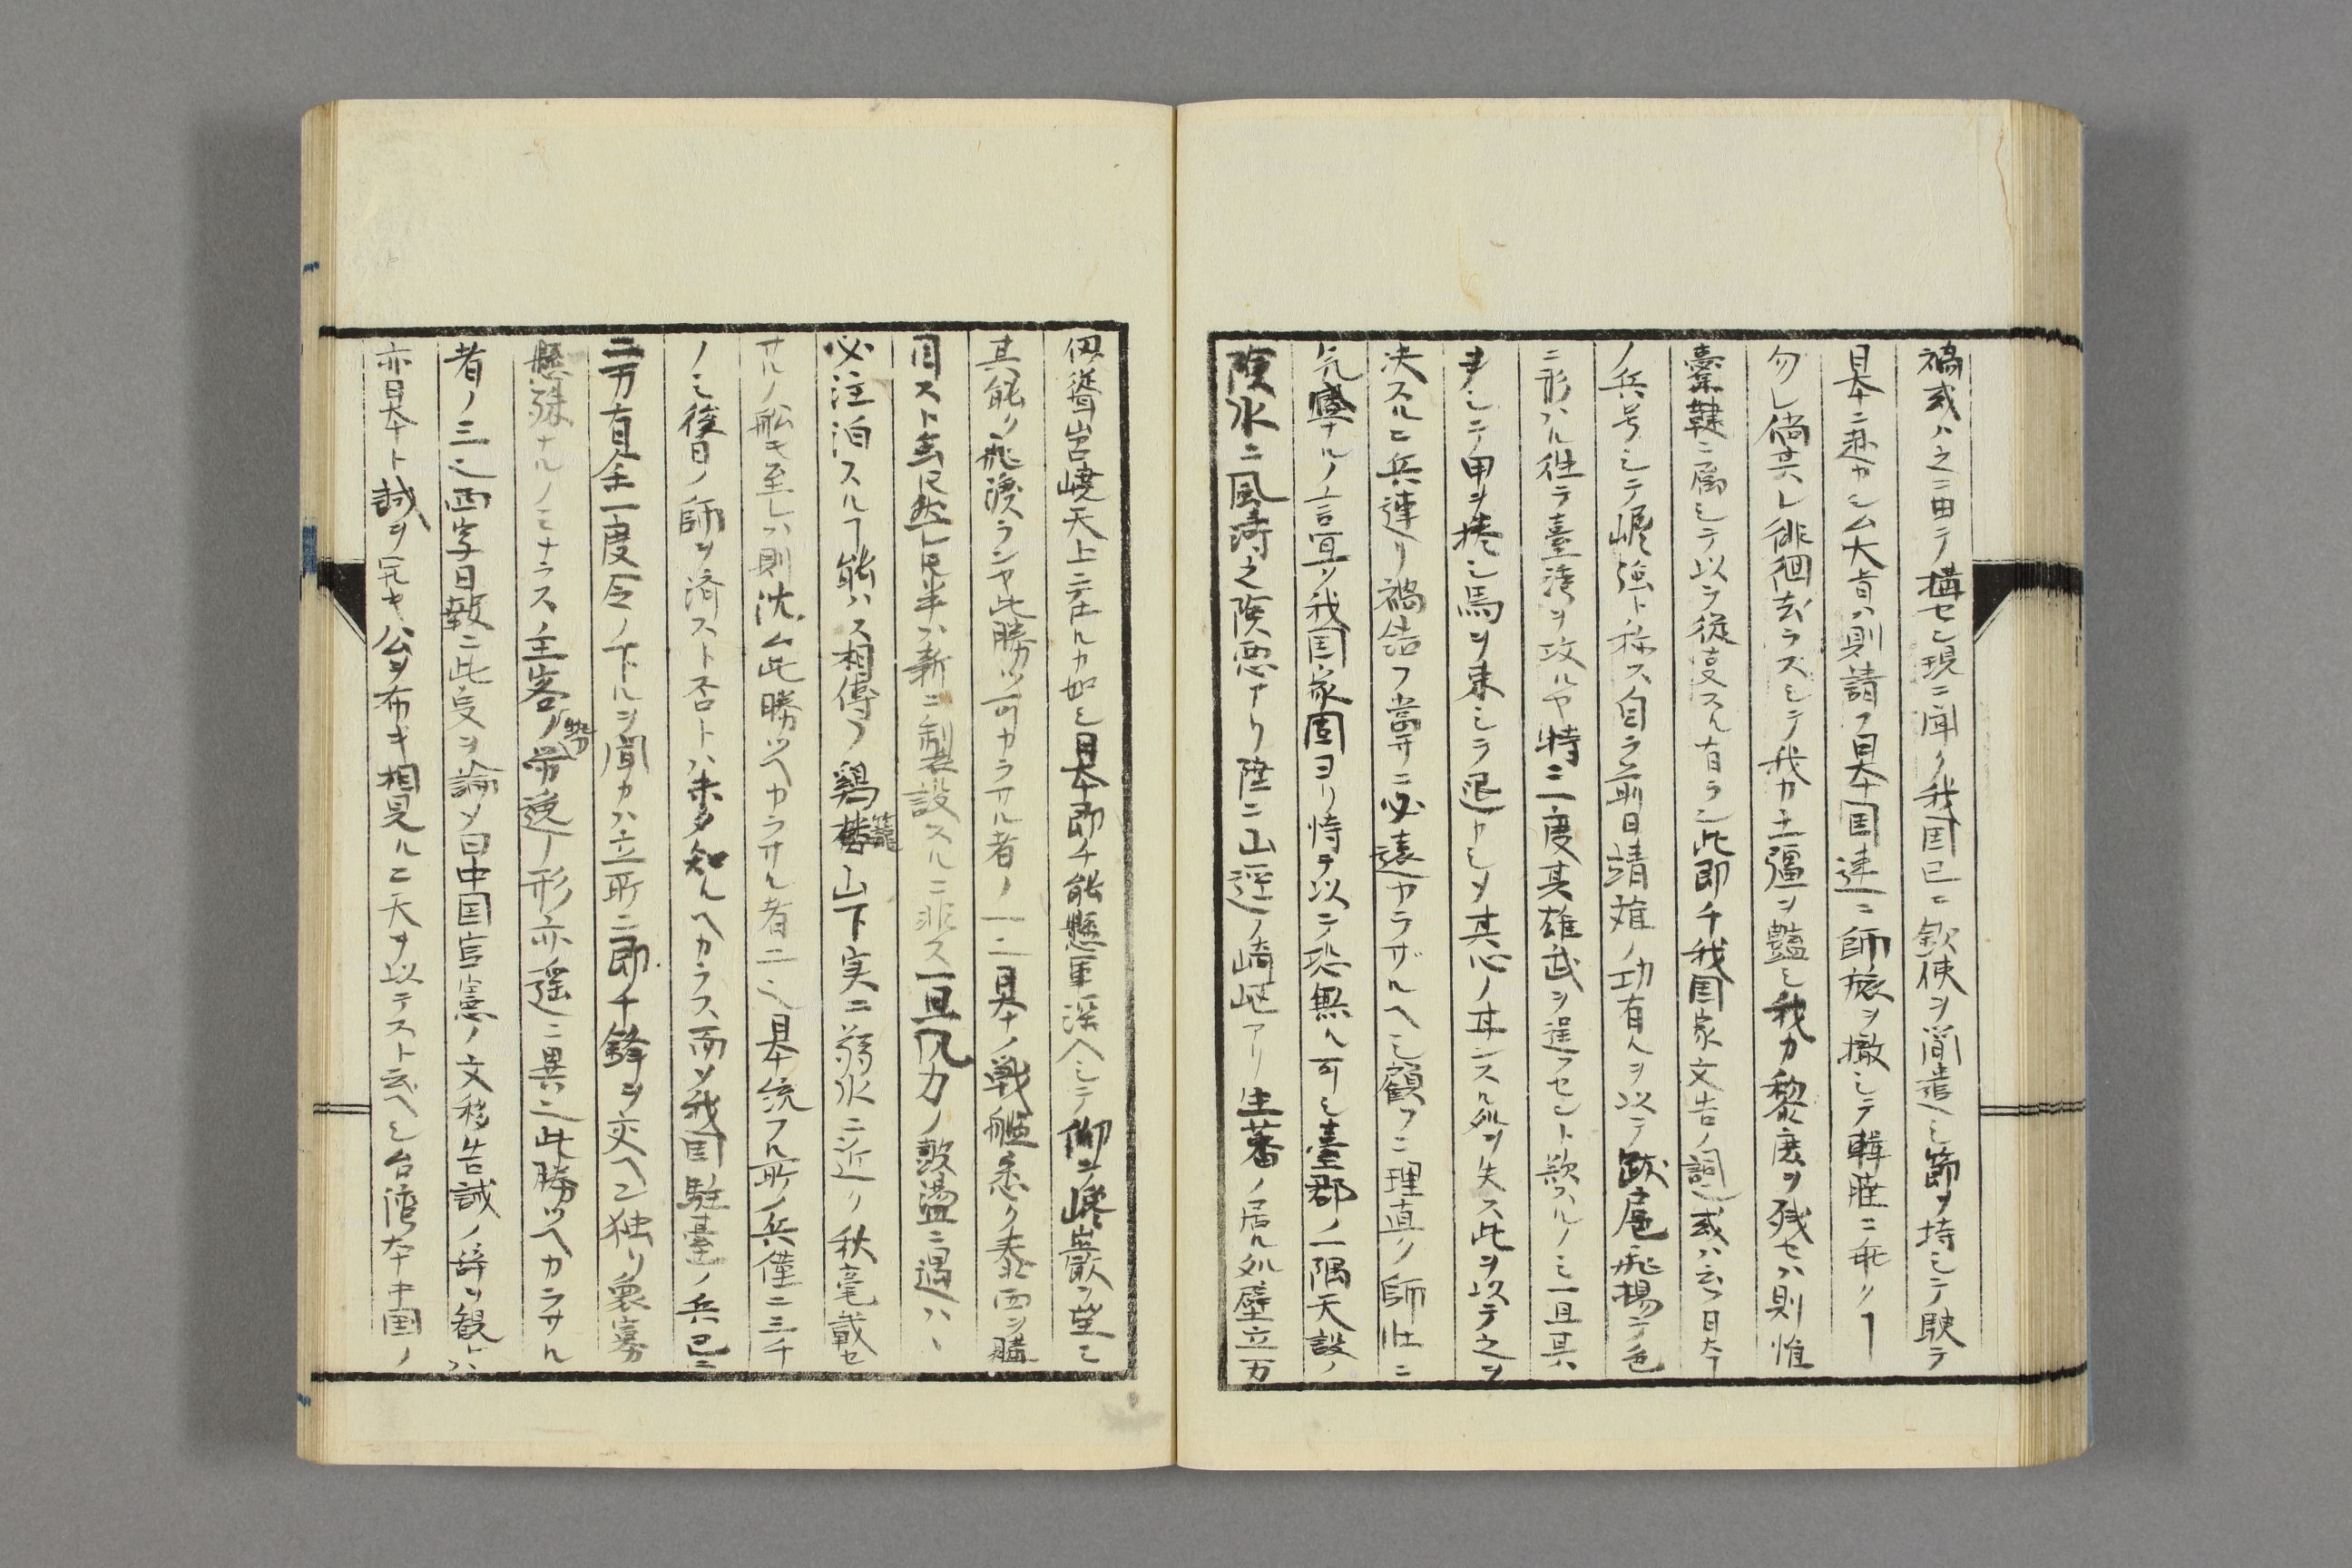 禍或ハ之ニ由テ構セン現ニ聞ク我国已ニ欽使ヲ簡遣シ節ヲ持シテ駛テ
日本ニ赴カシム大旨ハ則請フ日本国速ニ師旅ヲ撤シテ輯睦ニ乖クヿ
勿レ倘其レ徘徊去ラズシテ我カ土疆ヲ蠶シ我カ黎庶ヲ残セハ則惟
櫜鞬ニ属シテ以テ従事スル有ラン此即チ我国家文告ノ詞或ハ云フ日本
ノ兵号シテ崛強ト称ス自ラ前日靖難ノ功有ルヲ以テ跋扈飛揚シテ色
ニ形ハル往テ臺湾ヲ攻ルヤ特ニ一度其雄武ヲ逞フセント欲ハルノミ一旦其
ヲシテ甲ヲ捲シ馬ヲ束シテ退カシメ其心ノ甘ンスル処ヲ失ス此ヲ以テ之ヲ
決スルニ兵連リ禍結フ當サニ必遠カラザルヘシ顧フニ理直ク師壮ニ
気盛ナルノ言宜ク我国家固ヨリ恃テ以テ恐無ル可シ臺郡ノ一隅天設ノ
険水ニ風濤之険悪アリ陸ニ山逕ノ崎嶇アリ生蕃ノ居ル処壁立万
仭聳岧嶢天上ニ在ルカ如シ日本即チ能懸軍深入シテ仰テ巉巌ヲ望ミ
其能ク飛渡ランヤ此勝ツ可カラサル者ノ一ニ日本ノ戦艦悉ク泰西ヨリ購
回スト云ﾄﾓ然レﾄﾓ半ハ新ニ製設スルニ非ス一旦風力ノ鼓盪ニ遇ハヽ
必注泊スルヿ能ハス相傳フ鶏籠山下実ニ弱水ニ近ク秋毫載セ
サルノ舩モ至レハ則沈ム此勝ツヘカラサル者二也日本統フル所ノ兵僅ニ三千
ノミ後日ノ師ヲ済スト否トハ未タ知ルヘカラス而ソ我国駐臺ノ兵已ニ
二万有余一度令ノ下ルヲ聞カハ立所ニ即チ鋒ヲ交ヘン独リ衆寡
懸殊ナルノミナラス主客ノ勢労逸ノ形亦遥ニ異也此勝ツヘカラサル
者ノ三也西字日報ニ此事ヲ論メ曰中国官憲ノ文移告誡ノ辞ヲ観レハ
亦日本ト誠ヲ開キ公ヲ布キ相見ルニ天ヲ以テスト云ヘシ台湾本中国ノ